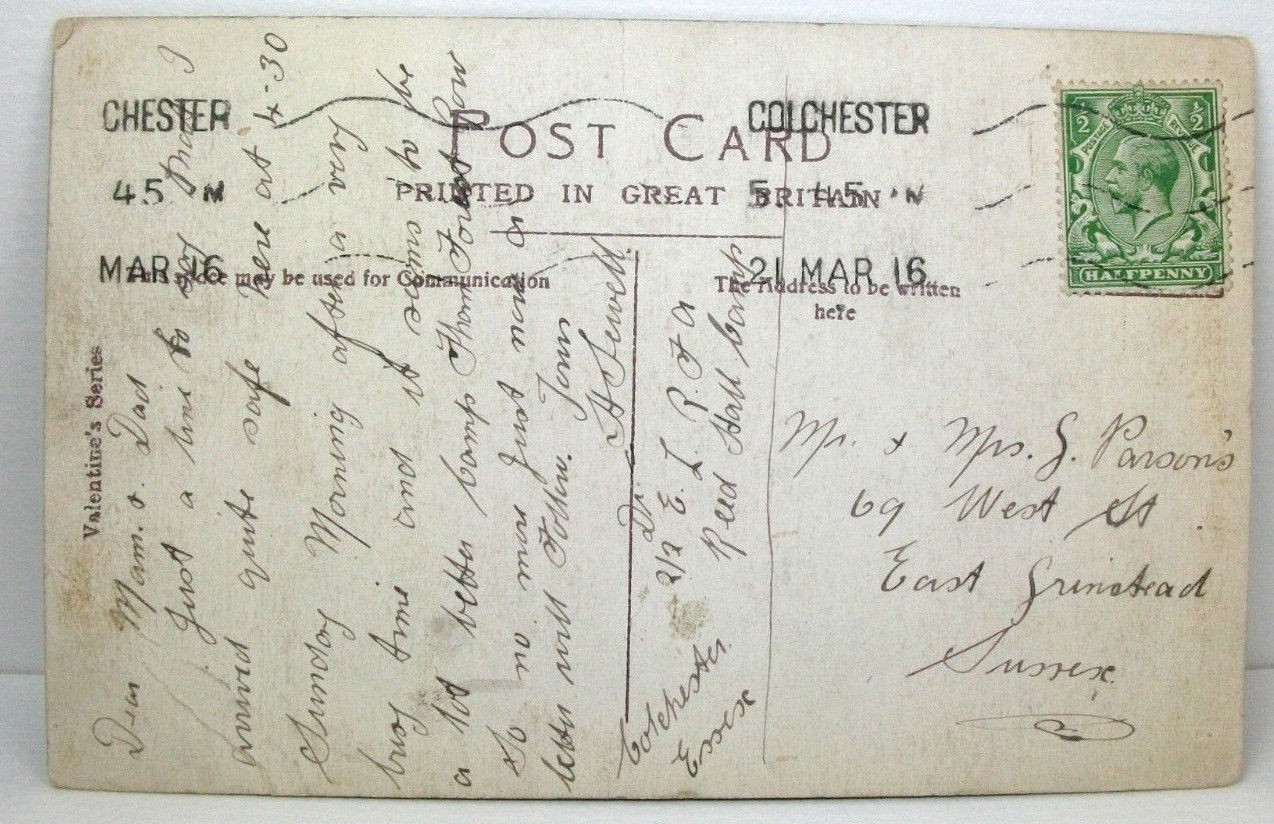 CHESTER
45
MAR 16
POST CARD
PRINTED IN GREAT BRITAIN
COLCHESTER
5 45
21 MAR 16
½ ½
POSTAGE REVENUE
HALFPENNY
This space may be used for Communication
The Address to be written
here
Valentine's Series
Dear Mam. & Dad
Just a line to say that I
arrived quite safe here at 4-30
Sunday Morning after a very
busy time and it seems to be
a lot better camp Thorn Forest how
So no more just now a
letter will Follow. Yours
2/2 E. L. R. F A
Reed Hall Camp
Colchester
Essex
Mr. & Mrs. G. Parson's
69 West St
East Grinstead
Sussex.